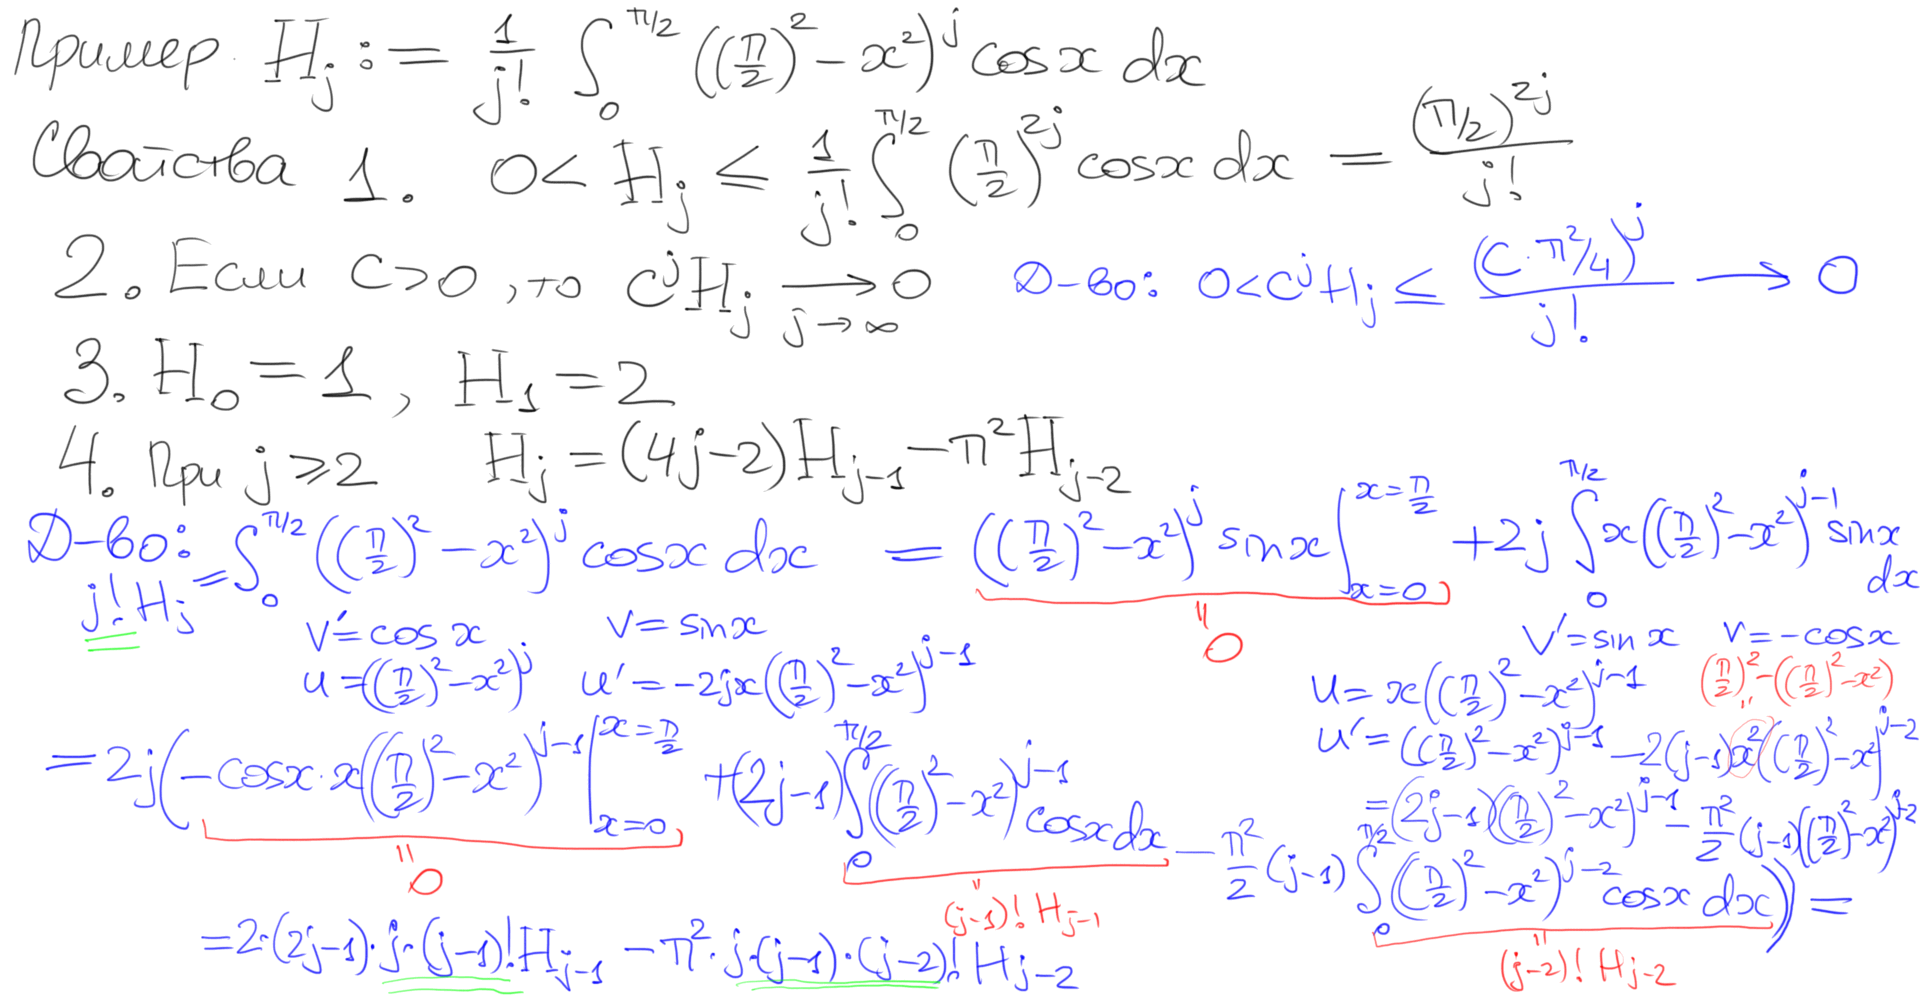 Пример. H_j := 1/j! ∫_0^{π/2} ((π/2)^2 − x^2)^j cos x dx
Свойства 1. 0 < H_j ≤ 1/j! ∫_0^{π/2} (π/2)^{2j} cos x dx = (π/2)^{2j} / j!
2. Если C>0, то C^j H_j → 0 j→∞ Д-во: 0 < C^j H_j ≤ (C·π^2/4)^j / j! → 0
3. H_0 = 1, H_1 = 2
4. При j ⩾ 2 H_j = (4j−2)H_{j−1} − π^2 H_{j−2}
Д-во: j! H_j = ∫_0^{π/2} ((π/2)^2 − x^2)^j cos x dx = ((π/2)^2 − x^2)^j sin x |_{x=0}^{x=π/2} + 2j ∫_0^{π/2} x((π/2)^2 − x^2)^{j−1} sin x dx
" 0
v' = cos x v = sin x
u = ((π/2)^2 − x^2)^j u' = −2jx((π/2)^2 − x^2)^{j−1}
v' = sin x v = −cos x
u = x((π/2)^2 − x^2)^{j−1} (π/2)^2 − ((π/2)^2 − x^2)
"
u' = ((π/2)^2 − x^2)^{j−1} − 2(j−1)x^2((π/2)^2 − x^2)^{j−2}
= (2j−1)((π/2)^2 − x^2)^{j−1} − π^2/2 (j−1)((π/2)^2 − x^2)^{j−2}
= 2j(−cos x · x((π/2)^2 − x^2)^{j−1} |_{x=0}^{x=π/2} + (2j−1) ∫_0^{π/2} ((π/2)^2 − x^2)^{j−1} cos x dx − π^2/2 (j−1) ∫_0^{π/2} ((π/2)^2 − x^2)^{j−2} cos x dx) =
" 0 " (j−1)! H_{j−1} " (j−2)! H_{j−2}
= 2·(2j−1)·j·(j−1)! H_{j−1} − π^2·j·(j−1)·(j−2)! H_{j−2}